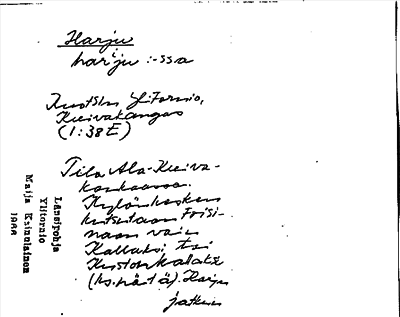 Harju
harju :-ssa
Ruotsin Ylitornio,
Kuivakangas
(1:38 E)
Tila Ala-Kuiva-
kankaassa.
Kylän kesken
kutsutaan toisi-
naan vain
Kallaksi tai
Kuston kallaksi
(ks. nätä). Harju
jatkuu
Länsipohja
Ylitornio
Maija Kainulainen
1966